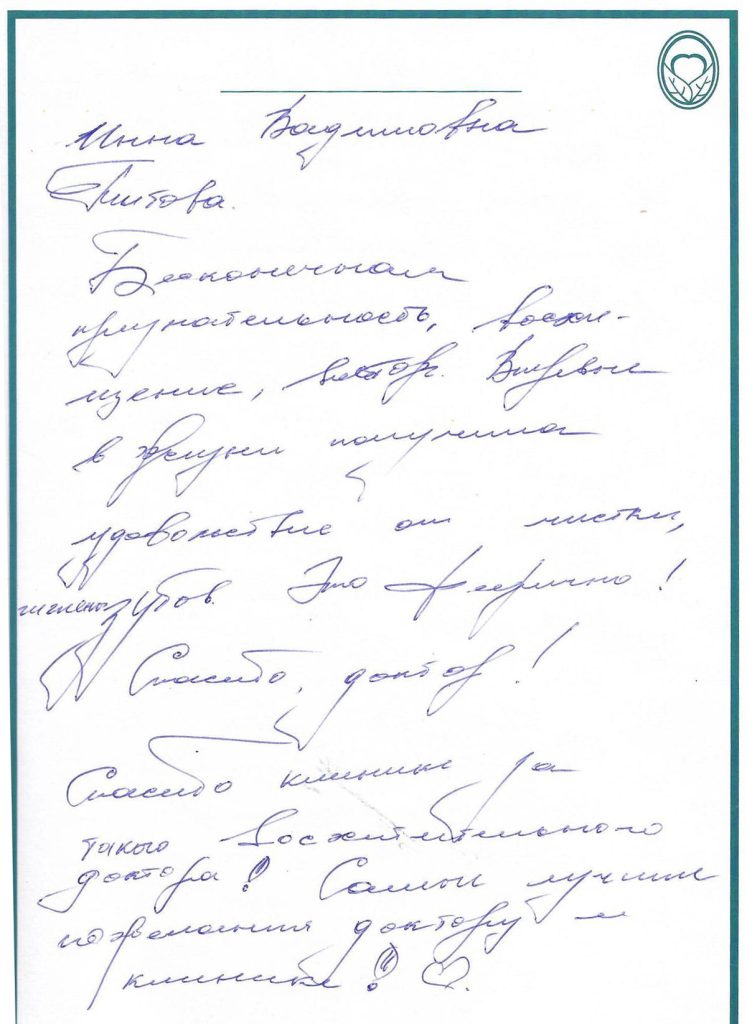 Инна Вадимовна
Титова.
Бесконечная
признательность, восхи-
щение, восторг. Впервые
в жизни получила
удовольствие от чистки,
гигиены зубов. Это феерично!
Спасибо, доктор!
Спасибо клинике за
такого восхитительного
доктора! Самые лучшие
пожелания доктору и
клинике!